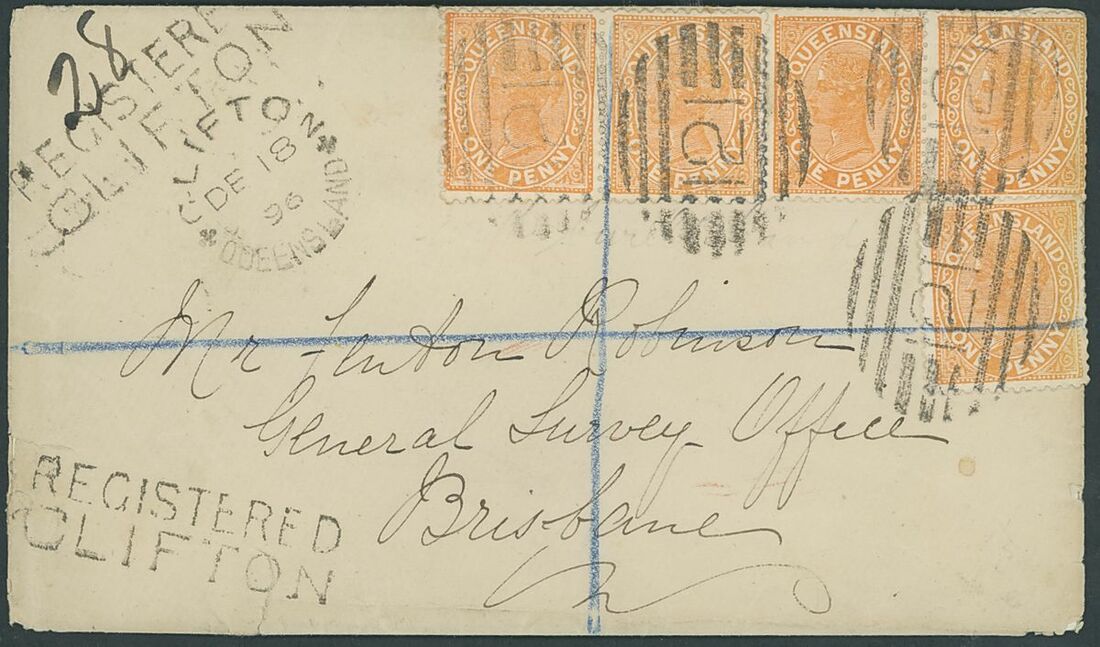 28
REGISTERE
CLIFTON
CLIFTON
DE 18
96
QUEENSLAND
QUEENSLAND
ONE PENNY
QUEENSLAND
ONE PENNY
QUEENSLAND
ONE PENNY
QUEENSLAND
ONE PENNY
QUEENSLAND
ONE PENNY
Mr Robinson
General Survey Office
Brisbane
REGISTERED
CLIFTON